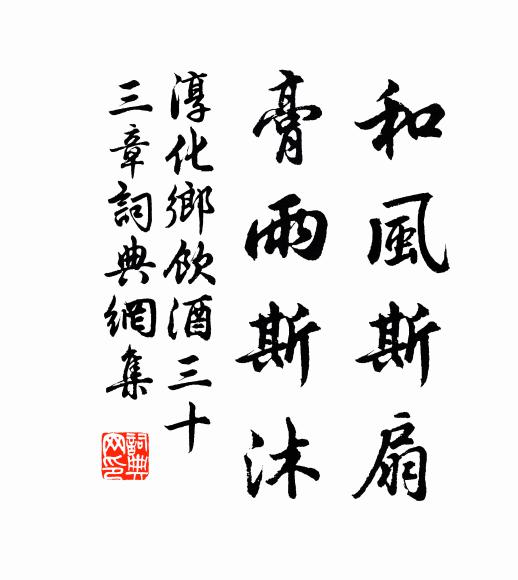 和風斯扇
膏雨斯沐
淳化鄉飲酒三十
三章詞典網集
詞典网印